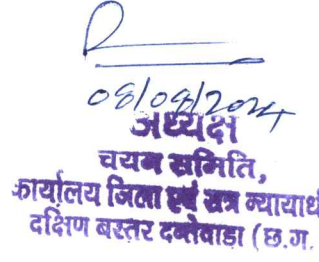 08/08/2024
अध्यक्ष
चयन समिति,
कार्यालय जिला एवं सत्र न्यायाधी
दक्षिण बस्तर दन्तेवाडा (छ.ग.